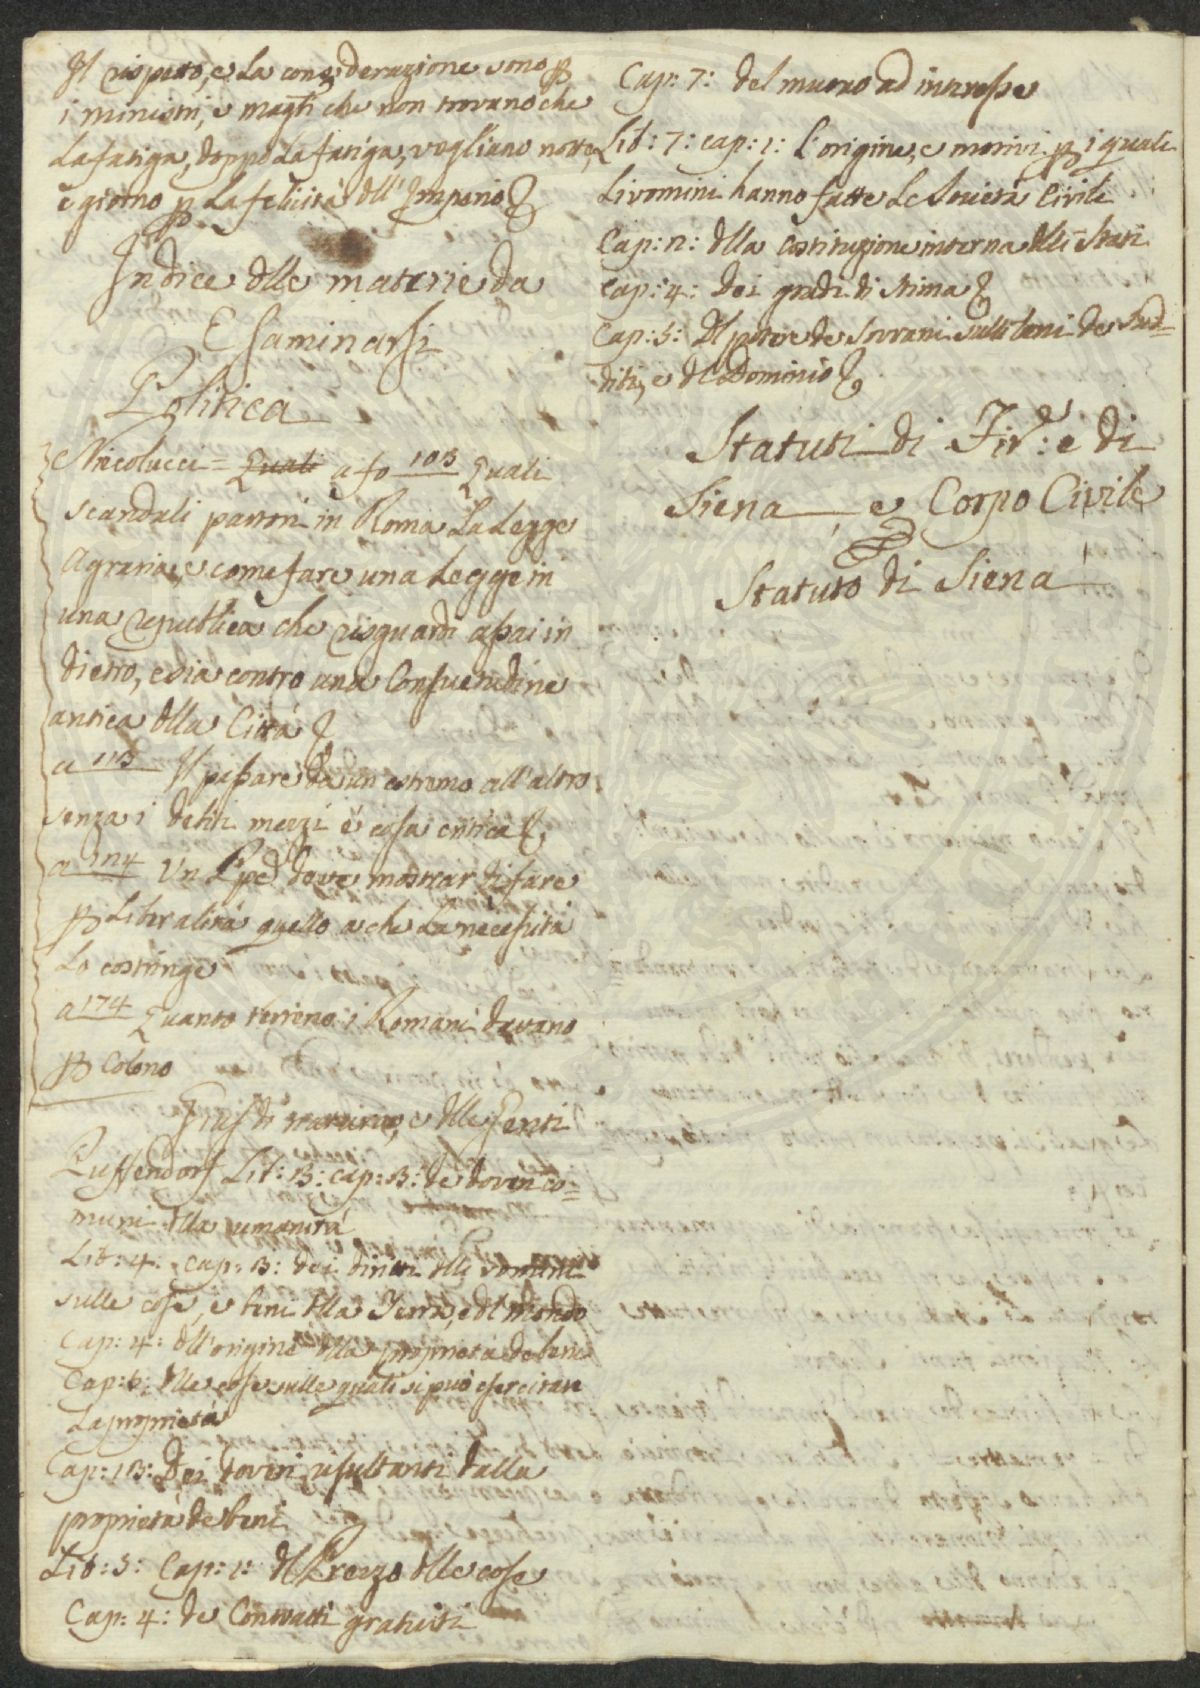 Il rispetto, e La considerazione sono p
i ministri, e mag.ti che non trovano che
La fatiga, doppo La fatiga, vegliano notte,
e giorno p La felicità dll' Imperio &
Indice dlle materie da
Esaminarsi
Politica
Nicolucci = Quali a fo 103 Quali
scandali partorì in Roma La Legge
Agraria, e come fare una Legge in
una republica che risguardi assai in
dietro, e sia contro una Consuetudine
antica dlla Città &
a 113 Il passare da un estremo all'altro
senza i debiti mezzi è cosa critica &
a 124 Un Ppe deve mostrar di fare
p Liberalità quello a che La necessità
Lo costringe
a 174 Quanto terreno i Romani davano
p Colono
Jus di natura, e dlle Genti
Puffendorf Lib: 3: cap: 3: de doveri co=
muni dlla umanità
Lib: 4: cap: 3: dei diritti dlli vomini
sulle cose, e beni dlla Terra, e dl mondo
Cap: 4: dll'origine dlla proprietà de beni
Cap: 5: dlle cose sulle quali si può esercitare
La proprietà
Cap: 13: Dei doveri resultanti dalla
proprietà de beni
Lib: 5: Cap: 1: dl Prezzo dlle cose
Cap: 4: de Contratti gratuiti
Cap: 7: del mutuo ad interesse
Lib: 7: cap: 1: L'origine, e motivi p i quali
Li vomini hanno fatte Le Società Civili
Cap: 2: dlla costituzione interna dlli Stati
Cap: 4: Dei gradi di stima &
Cap: 5: Dl potere de Sovrani sulli beni de Sud=
diti, e dl Dominio &
Statuti di Fir.e: e di
Siena e Corpo Civile
Statuto di Siena